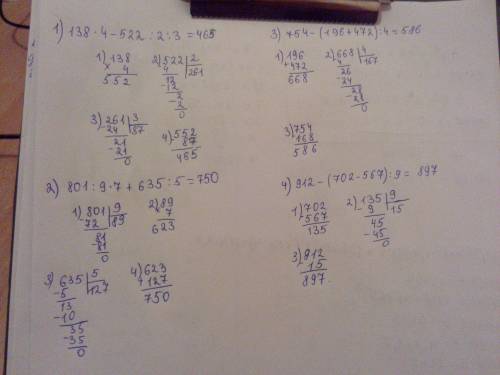 1) 138 · 4 - 522 : 2 : 3 = 465
1) 138
× 4
552
2) 522 2
4 261
12
- 12
2
- 2
0
3) 261 3
24 87
21
- 21
0
4) 552
- 87
465
2) 801 : 9 · 7 + 635 : 5 = 750
1) 801 9
72 89
81
81
0
2) 89
× 7
623
3) 635 5
- 5 127
13
- 10
35
- 35
0
4) 623
+ 127
750
3) 754 - (196 + 472) : 4 = 586
1) 196
+ 472
668
2) 668 4
4 167
26
- 24
28
- 28
0
3) 754
168
586
4) 912 - (702 - 567) : 9 = 897
1) 702
- 567
135
2) 135 9
9 15
45
- 45
0
3) 912
- 15
897